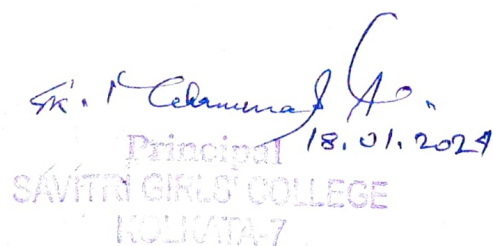 18.01.2024
Principal
SAVITRI GIRLS' COLLEGE
KOLKATA-7